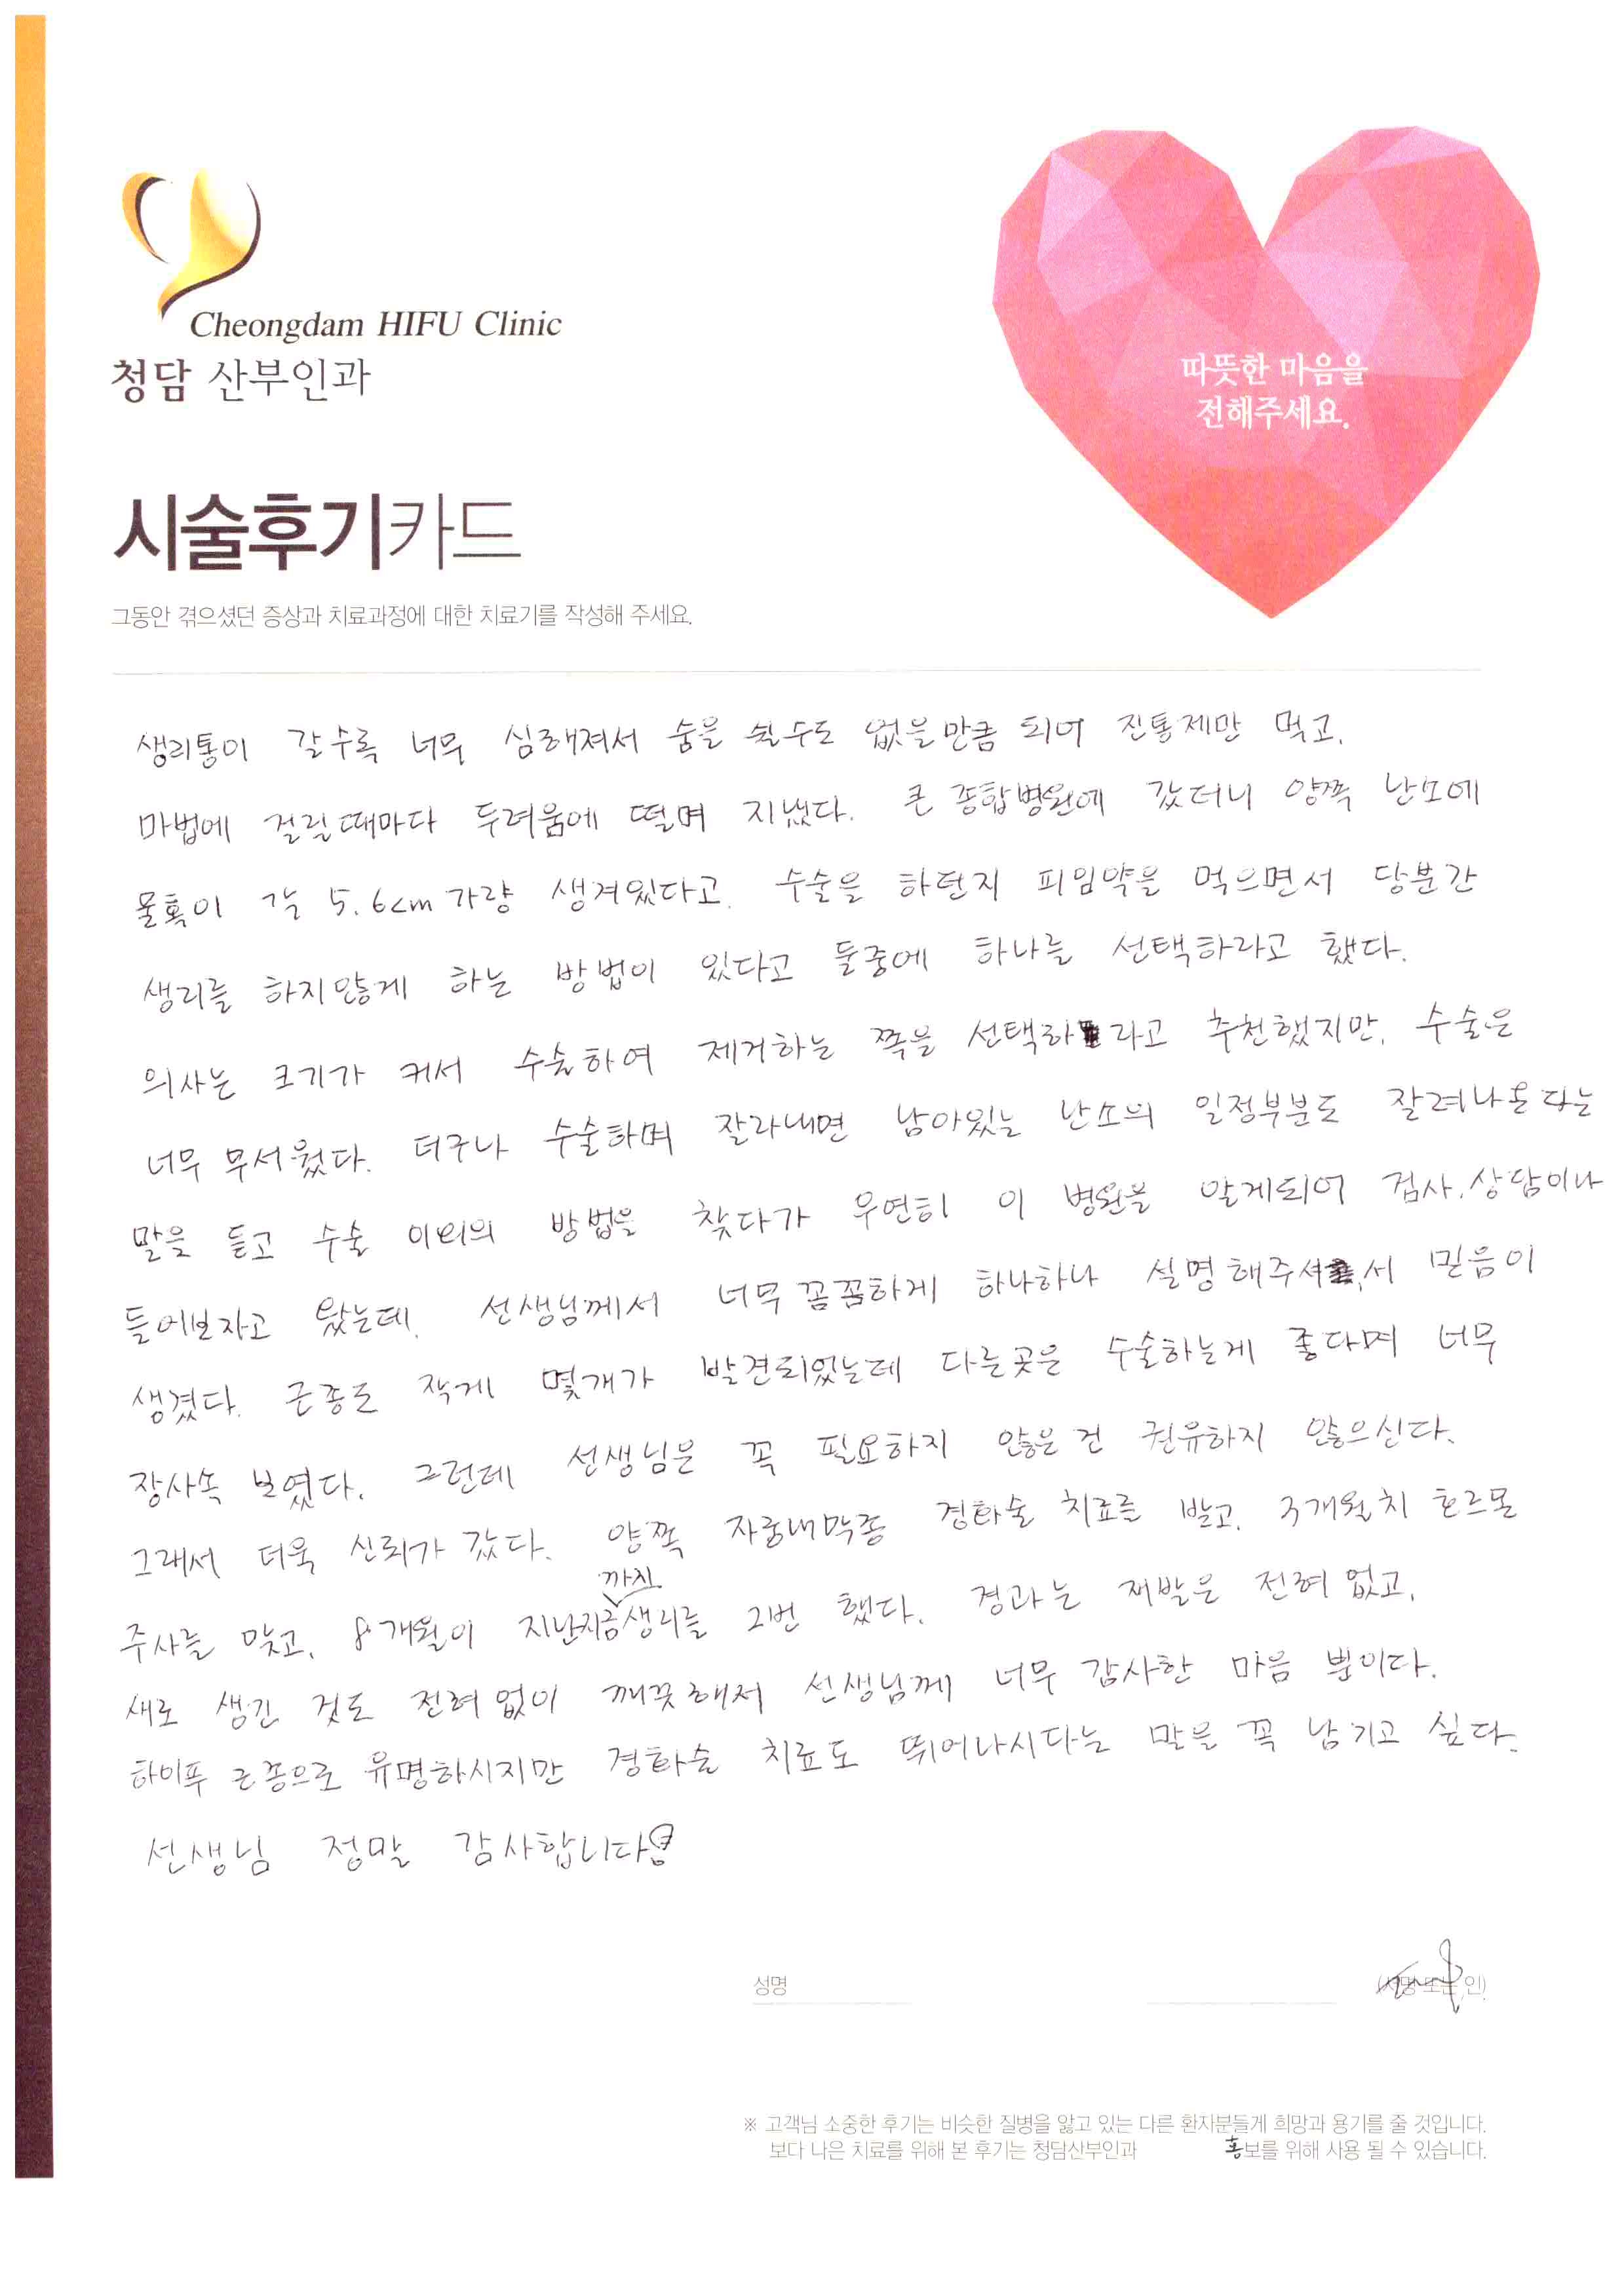 Cheongdam HIFU Clinic
청담 산부인과
따뜻한 마음을
전해주세요.
시술후기카드
그동안 겪으셨던 증상과 치료과정에 대한 치료기를 작성해 주세요.
생리통이 갈수록 너무 심해져서 숨을 쉴수도 없을만큼 되어 진통제만 먹고,
마법에 걸릴때마다 두려움에 떨며 지냈다. 큰 종합병원에 갔더니 양쪽 난소에
물혹이 각 5.6cm 가량 생겨있다고. 수술을 하던지 피임약을 먹으면서 당분간
생리를 하지않게 하는 방법이 있다고 둘중에 하나를 선택하라고 했다.
의사는 크기가 커서 수술하여 제거하는 쪽을 선택하라고 추천했지만, 수술은
너무 무서웠다. 더구나 수술하며 잘라내면 남아있는 난소의 일정부분도 잘려나온다는
말을 듣고 수술 이외의 방법을 찾다가 우연히 이 병원을 알게되어 검사, 상담이나
들어보자고 왔는데, 선생님께서 너무 꼼꼼하게 하나하나 설명해주셔서 믿음이
생겼다. 근종도 작게 몇개가 발견되었는데 다른곳은 수술하는게 좋다며 너무
장사속 보였다. 그런데 선생님은 꼭 필요하지 않은 건 권유하지 않으신다.
그래서 더욱 신뢰가 갔다. 양쪽 자궁내막종 경화술 치료를 받고, 3개월치 호르몬
주사를 맞고, 8개월이 지난지금까지 생리를 2번 했다. 경과는 재발은 전혀 없고,
새로 생긴 것도 전혀 없이 깨끗해져 선생님께 너무 감사한 마음 뿐이다.
하이푸 근종으로 유명하시지만 경화술 치료도 뛰어나시다는 말을 꼭 남기고 싶다.
선생님 정말 감사합니다
성명 (서명 또는 인)
※ 고객님 소중한 후기는 비슷한 질병을 앓고 있는 다른 환자분들게 희망과 용기를 줄 것입니다.
보다 나은 치료를 위해 본 후기는 청담산부인과 홍보를 위해 사용 될 수 있습니다.